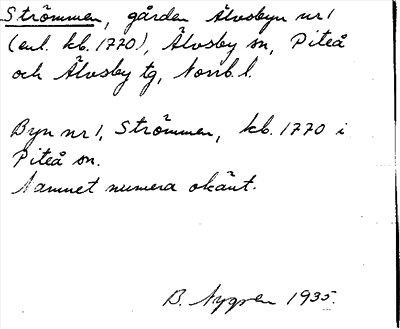 Strömmen, gården Älvsbyn nr 1
(enl. kb. 1770), Älvsby sn, Piteå
och Älvsby tg, Norrb. l.
Byn nr 1, Strömmen, kb. 1770 i
Piteå sn.
Namnet numera okänt.
B. Nygren 1935.